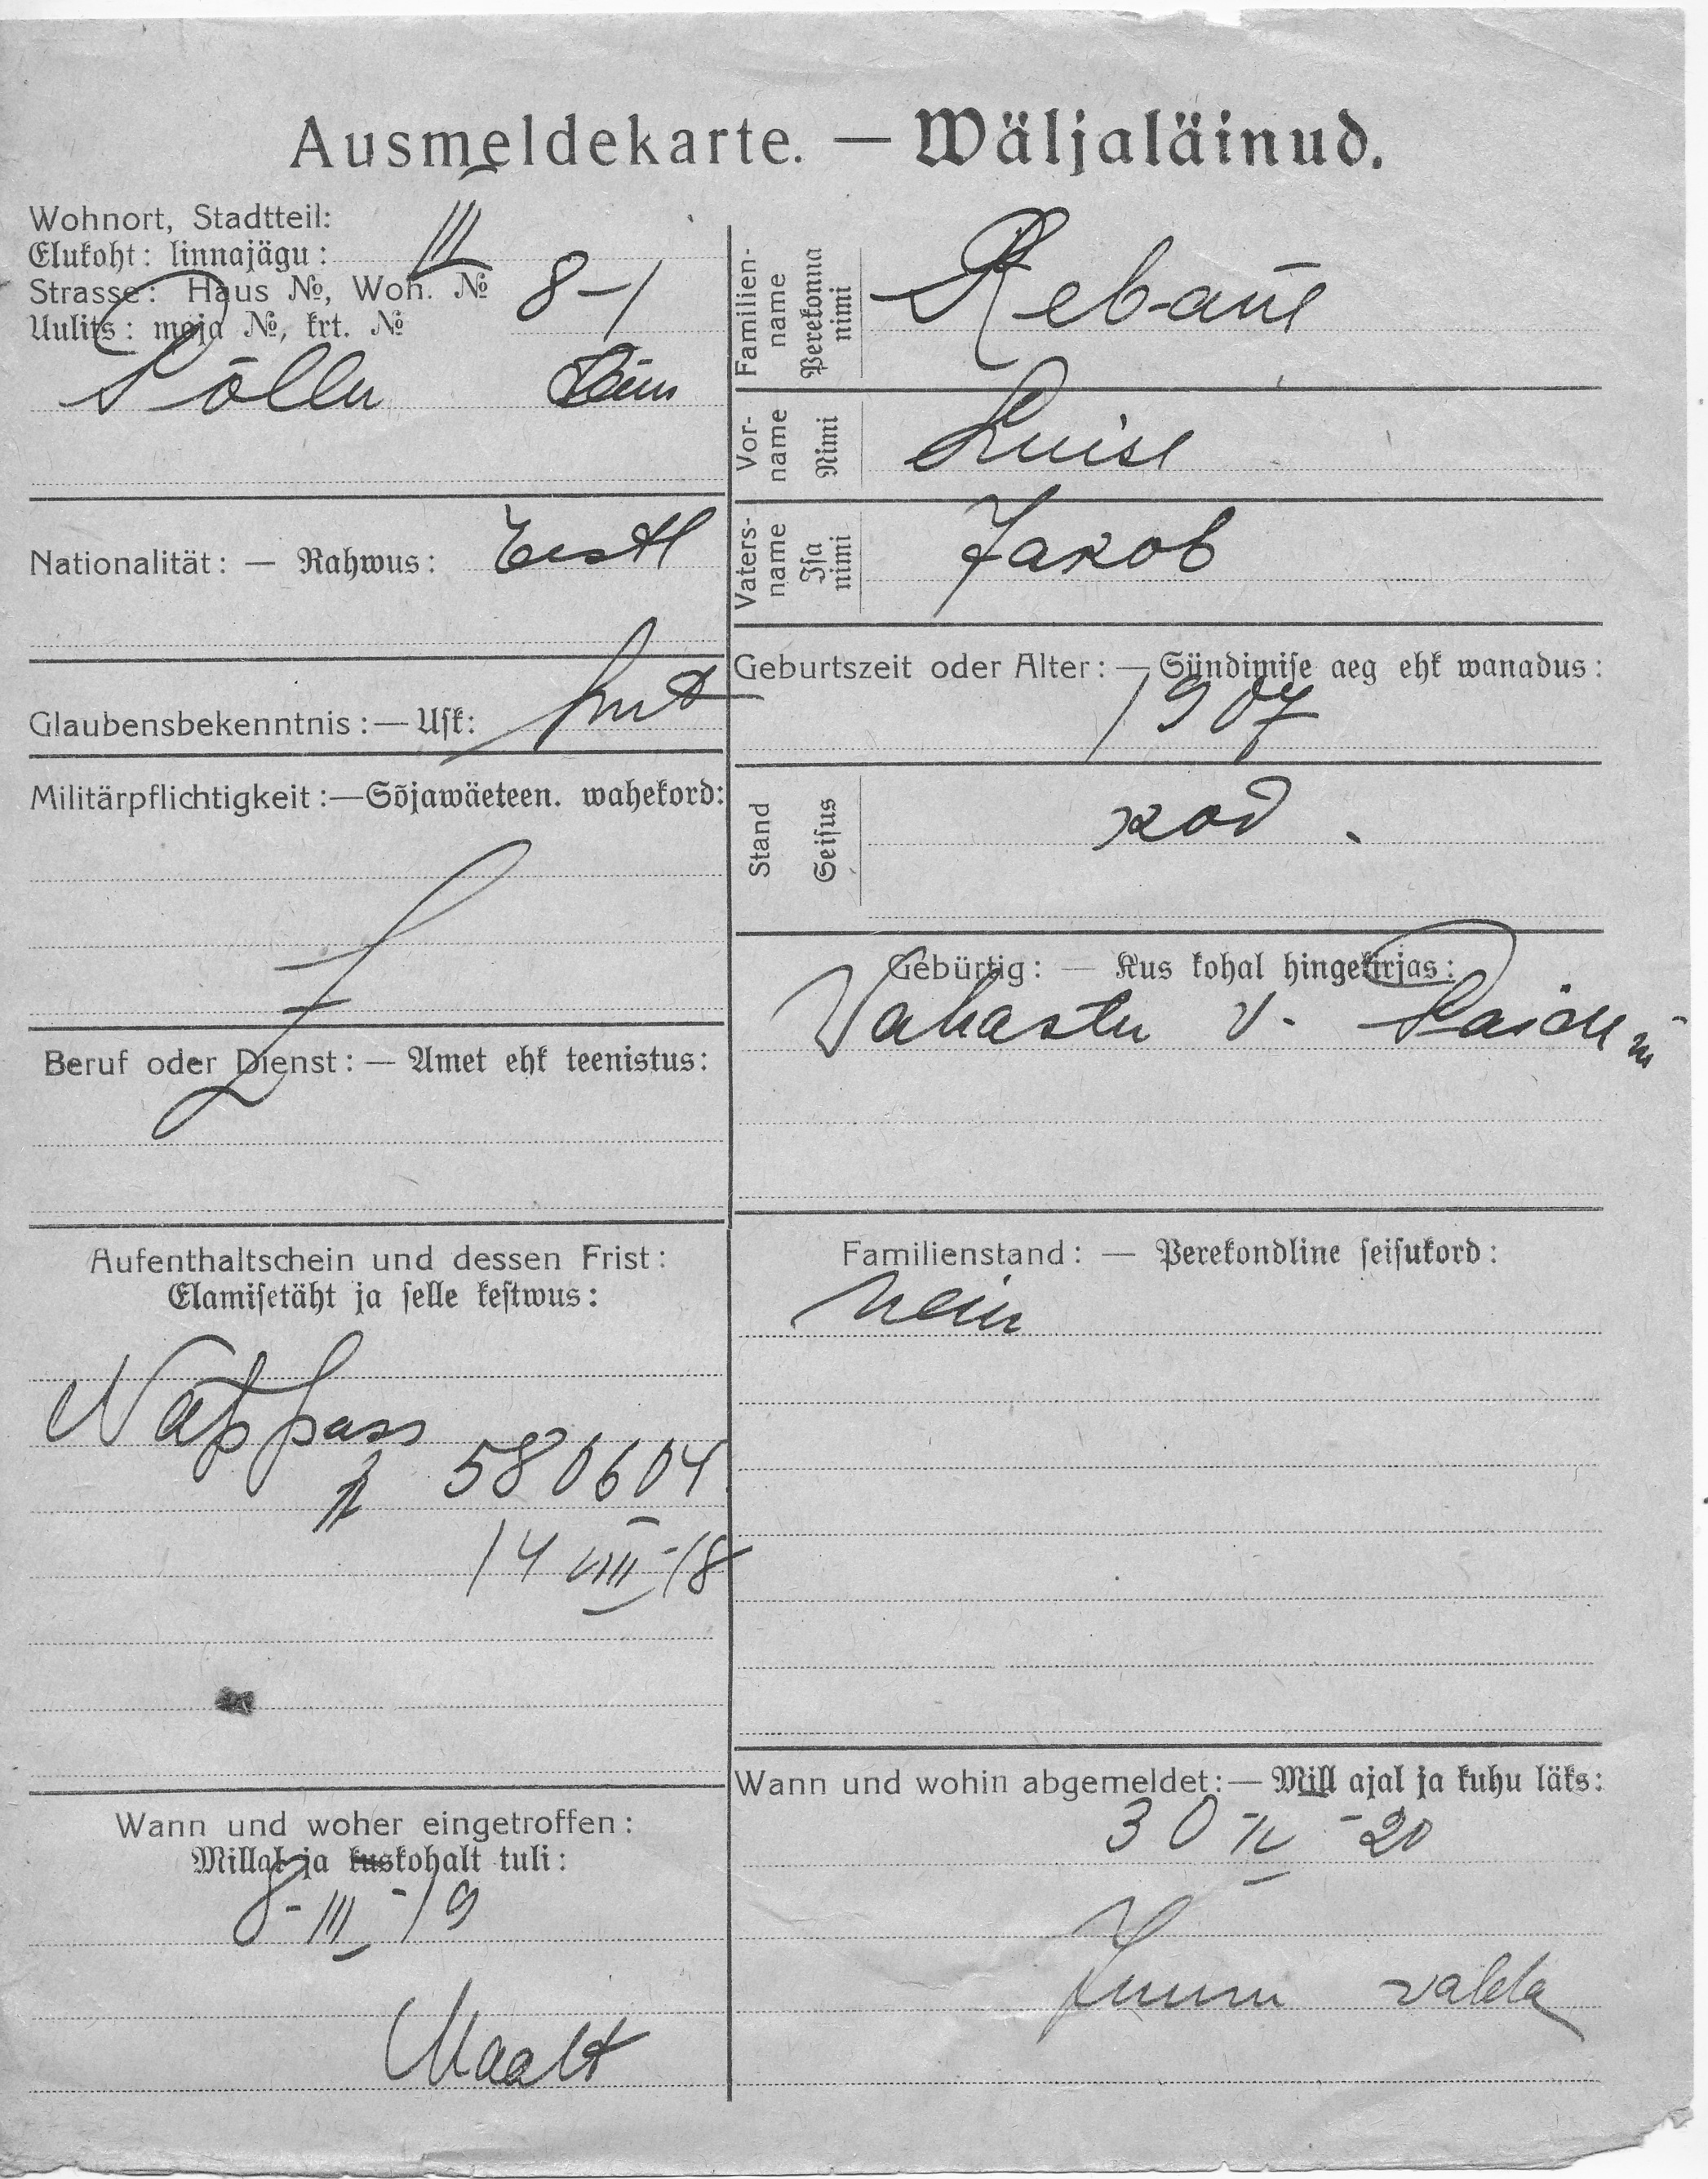 Ausmeldekarte. — Wäljaläinud.
Wohnort, Stadtteil:
Elukoht: linnajägu: III
Strasse: Haus №, Woh. № 8-1
Uulits: maja №, krt. №
Põllu tän
Nationalität: — Rahwus: Eestl
Glaubensbekenntnis: — Usk: Lut
Militärpflichtigkeit: — Sõjawäeteen. wahekord:
Beruf oder Dienst: — Amet ehk teenistus:
Aufenthaltschein und dessen Frist:
Elamisetäht ja selle kestwus:
pass
№ 580604
14 VIII-18
Wann und woher eingetroffen:
Millal ja kuskohalt tuli:
8-III-19
Maalt
Familien-name Perekonna nimi Rebane
Vor-name Nimi Luise
Vaters-name Isa nimi Jakob
Geburtszeit oder Alter: — Sündimise aeg ehk wanadus:
1907
Stand Seisus kod.
Gebürtig: — Kus kohal hingekirjas:
Vahastu v. Paide m
Familienstand: — Perekondline seisukord:
Wann und wohin abgemeldet: — Mill ajal ja kuhu läks:
30 IV-20
Juuru valda